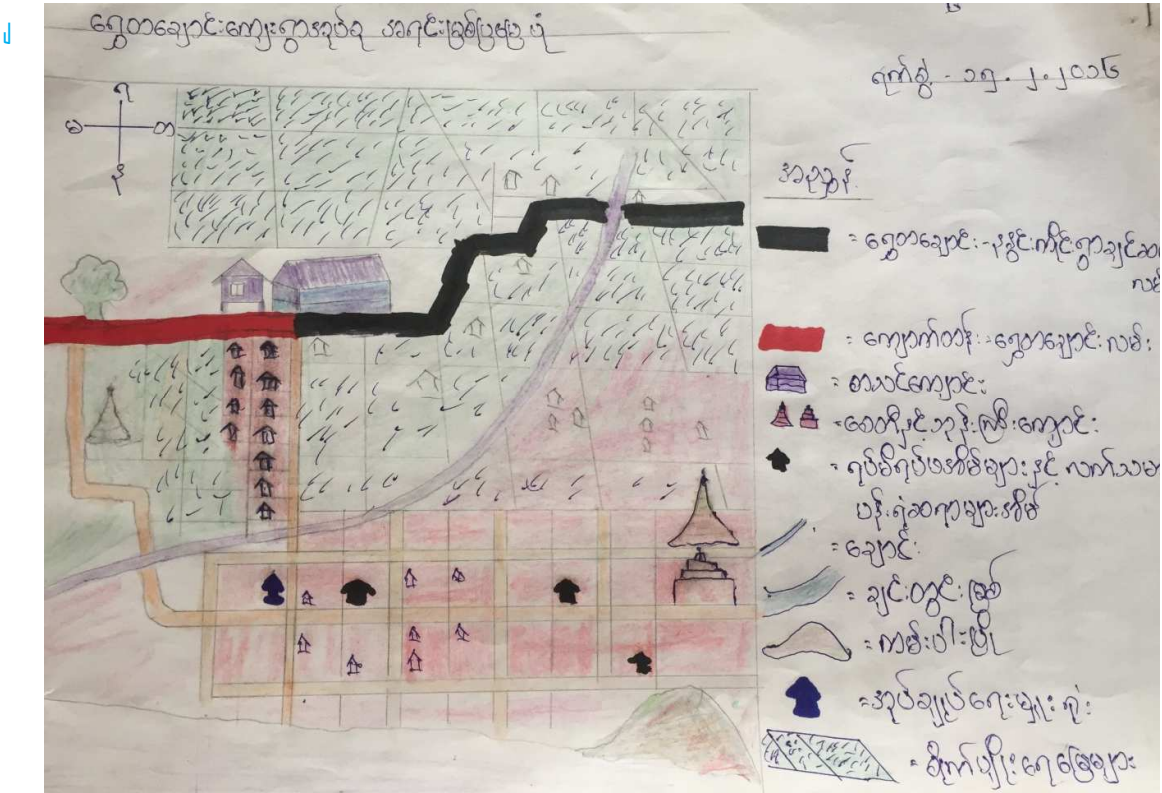 ရွှေတချောင်းကျေးရွာအုပ်စု အရင်းအမြစ်ပြမြေပုံ
ရက်စွဲ - ၁၅.၂.၂၀၁၆
မ
တ
အညွှန်း
= ရွှေတချောင်း
= ကျောက်တန်း-ရွှေတချောင်းလမ်း
= စာသင်ကျောင်း
= စေတီနှင့်ဘုန်းကြီးကျောင်း
= ရပ်မိရပ်ဖအိမ်များနှင့် လက်သမား
ပန်းရံဆရာများအိမ်
= ချောင်း
= ချင်းတွင်းမြစ်
= ကမ်းပါးပြို
= အုပ်ချုပ်ရေးမှူးရုံး
= စိုက်ပျိုးရေးမြေများ